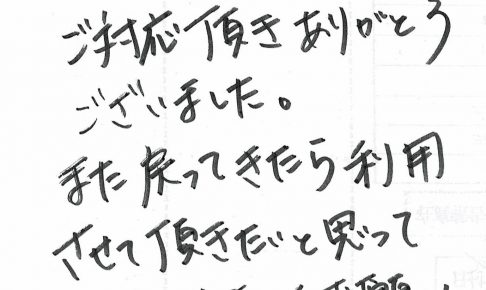 ご対応頂きありがとう
ございました。
また戻ってきたら利用
させて頂きたいと思って